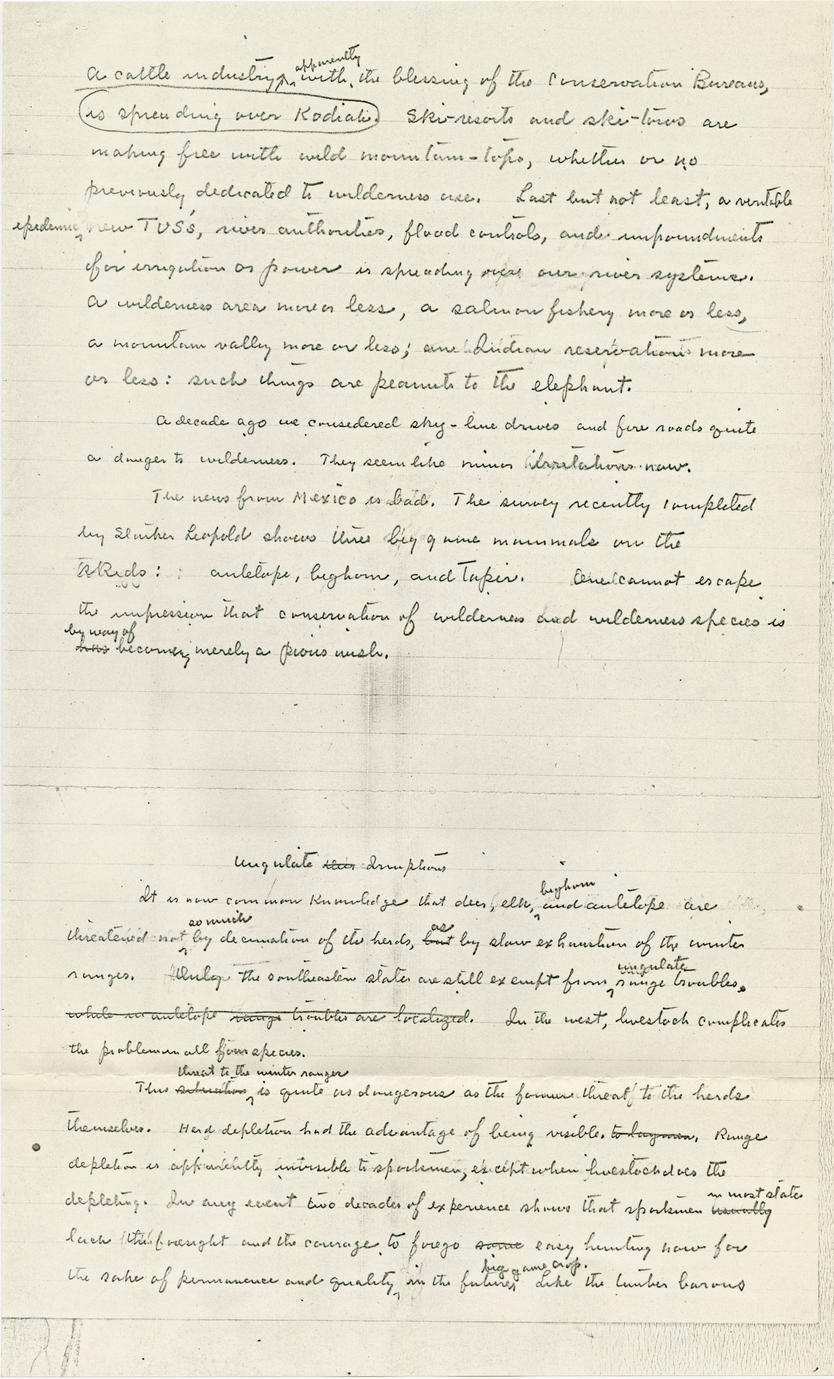 A cattle industry, apparently with the blessing of the Conservation Bureaus,
is spreading over Kodiak. Ski-resorts and ski-tows are
making free with wild mountain-tops, whether or no
previously dedicated to wilderness use. Last but not least, a veritable
epidemic new TVS's, river authorities, flood controls, and impoundments
for irrigation or power is spreading over our river systems.
A wilderness area more or less, a salmon fishery more or less,
a mountain valley more or less; an Indian reservation more
or less: such things are peanuts to the elephant.
A decade ago we considered sky-line drives and fire roads quite
a danger to wilderness. They seem like minor now.
The news from Mexico is bad. The survey recently completed
by Starker Leopold shows three big game mammals on the
skids: antelope, bighorn, and tapir. One cannot escape
the impression that conservation of wilderness and wilderness species is
by way of
has becoming merely a pious wish.
Ungulate Irruptions
bighorn
It is now common knowledge that deer, elk, and antelope are
so much as
threatened not by decimation of the herds, but by slow exhaustion of the winter
ungulate
ranges. Only the southeastern states are still exempt from range troubles.
while in antelope range troubles are localized. In the west, livestock complicates
the problem in all four species.
threat to the winter ranges
This situation is quite as dangerous as the former threat to the herds
themselves. Herd depletion had the advantage of being visible to laymen. Range
depletion is apparently invisible to sportsmen, except when livestock does the
in most states
depleting. In any event two decades of experience shows that sportsmen usually
lack the foresight and the courage to forego some easy hunting now for
big game crop.
the sake of permanence and quality in the future. Like the timber barons